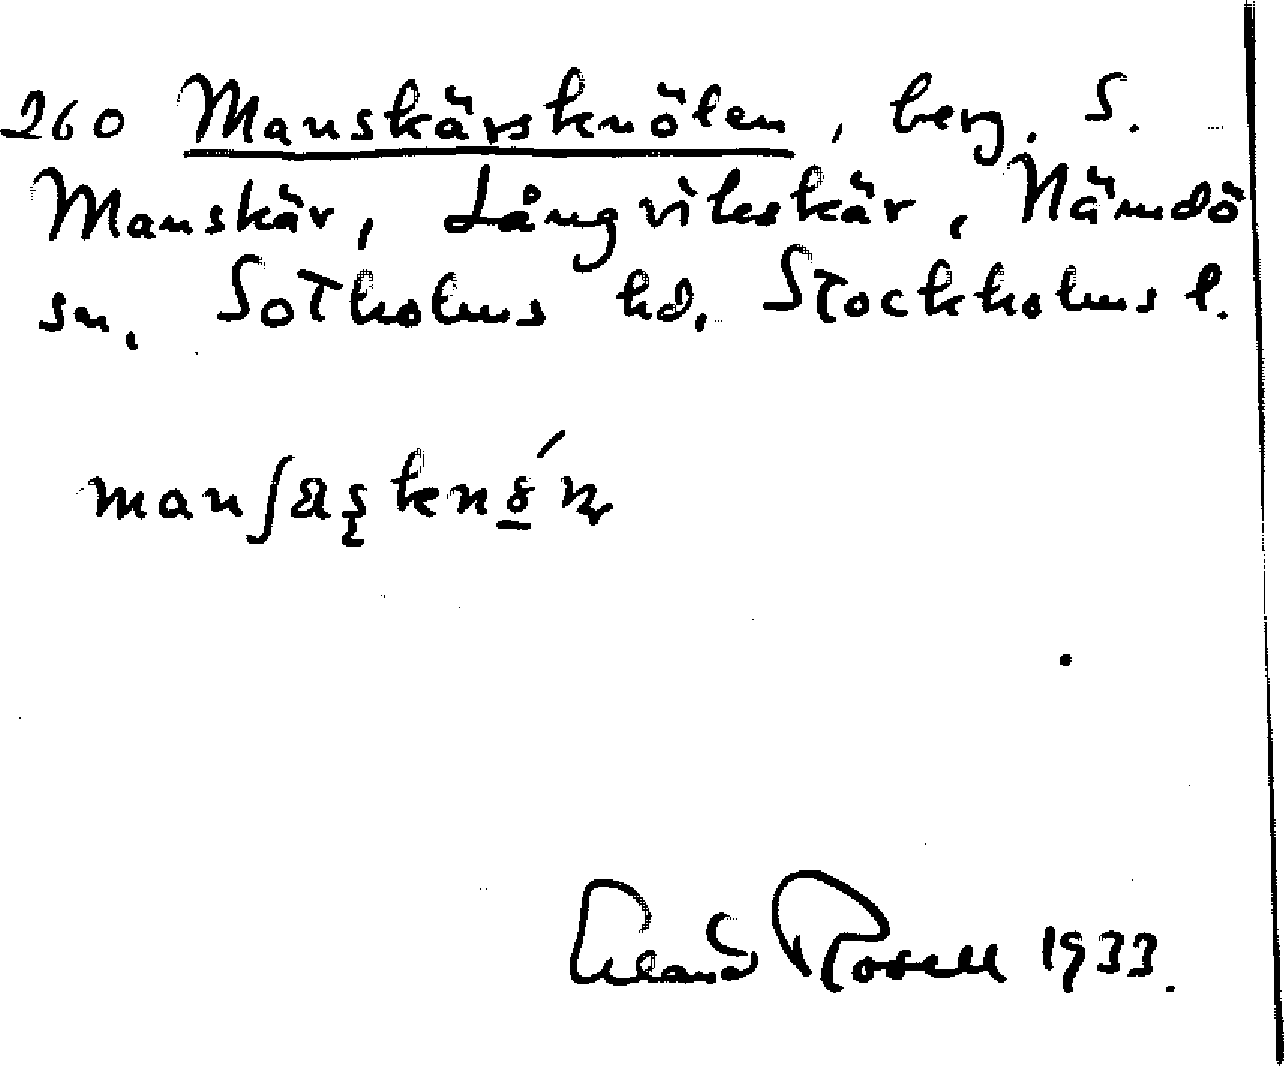 260 Manskärsknölen, berg. S.
Manskär, Långvikskär, Nämdö
sn, Sotholms hd, Stockholms l.
Rosell 1933.